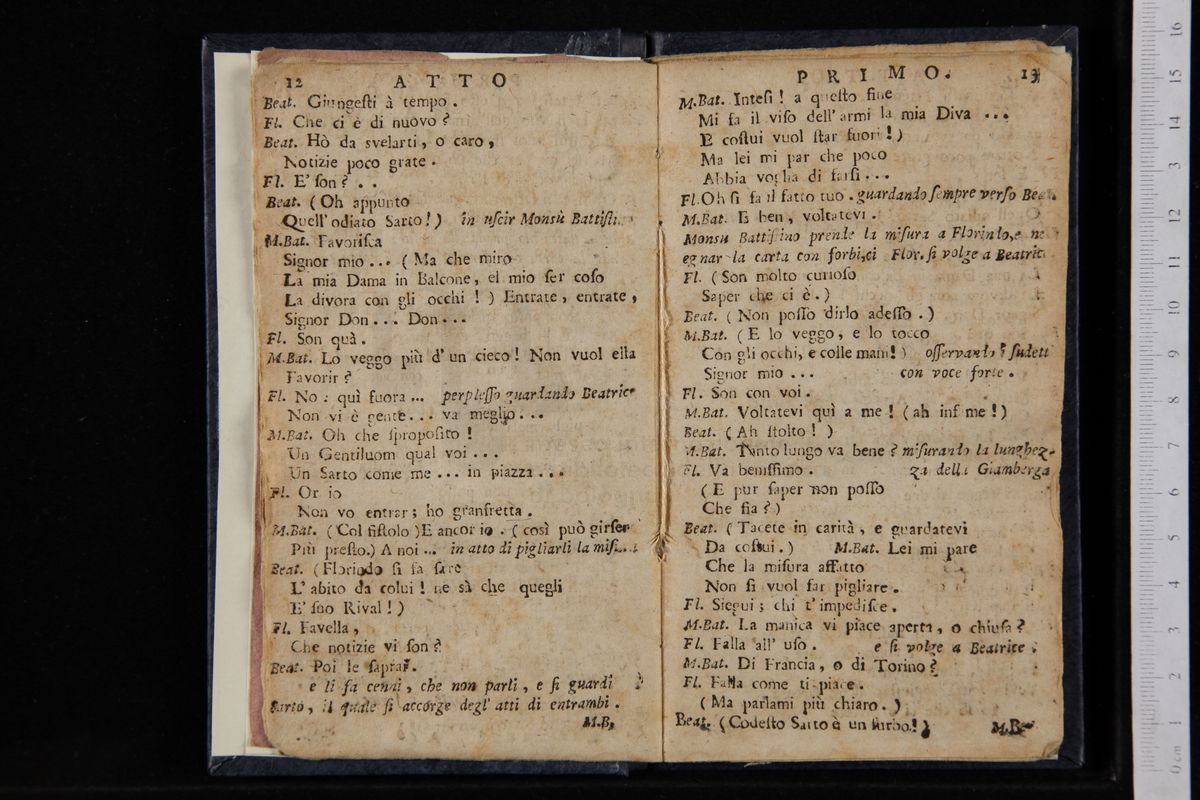 12 ATTO
Beat. Giungeſti à tempo.
Fl. Che ci è di nuovo?
Beat. Hò da svelarti, o caro,
Notizie poco grate.
Fl. E' ſon? . .
Beat. (Oh appunto
Quell' odiato Sarto!) in uſcir Monsù Battiſti
M.Bat. Favoriſca
Signor mio... (Ma che miro
La mia Dama in Balcone, el mio ſer coſo
La divora con gli occhi!) Entrate, entrate,
Signor Don... Don...
Fl. Son quà.
M.Bat. Lo veggo più d' un cieco! Non vuol ella
Favorir?
Fl. No: quì fuora... perpleſſo guardando Beatrice
Non vi è gente... va meglio...
M.Bat. Oh che ſpropoſito!
Un Gentiluom qual voi...
Un Sarto come me... in piazza...
Fl. Or io
Non vo entrar; ho granfretta.
M.Bat. (Col fiſtolo) E ancor io. (così può girſen
Più preſto.) A noi... in atto di pigliarli la miſ
Beat. (Florindo ſi fa fare
L' abito da colui! ne sà che quegli
E' ſuo Rival!)
Fl. Favella,
Che notizie vi ſon?
Beat. Poi le ſaprai.
e li fa cenni, che non parli, e ſi guardi
Sarto, il quale ſi accorge degl' atti di entrambi.
M.B.
PRIMO. 13
M.Bat. Inteſi! a queſto fine
Mi fa il viſo dell' armi la mia Diva ...
E coſtui vuol ſtar fuori!)
Ma lei mi par che poco
Abbia voglia di farſi...
Fl. Oh ſi fa il fatto tuo. guardando ſempre verſo Beat.
M.Bat. E ben, voltatevi.
Monsu Battiſtino prende la miſura a Florindo, e
egnar la carta con forbici Flor. ſi volge a Beatric
Fl. (Son molto curioſo
Saper che ci è.)
Beat. (Non poſſo dirlo adeſſo.)
M.Bat. (E lo veggo, e lo tocco
Con gli occhi, e colle mani!) oſſervando i ſudett
Signor mio... con voce forte.
Fl. Son con voi.
M.Bat. Voltatevi quì a me! (ah infame!)
Beat. (Ah ſtolto!)
M.Bat. Tanto lungo va bene? miſurando la lunghez-
Fl. Va beniſſimo. za della Giamberga
(E pur ſaper non poſſo
Che ſia?)
Beat. (Tacete in carità, e guardatevi
Da coſtui.) M.Bat. Lei mi pare
Che la miſura affatto
Non ſi vuol far pigliare.
Fl. Siegui; chi t' impediſce.
M.Bat. La manica vi piace aperta, o chiuſa?
Fl. Falla all' uſo. e ſi volge a Beatrice.
M.Bat. Di Francia, o di Torino?
Fl. Falla come ti piace.
(Ma parlami più chiaro.)
Beat. (Codeſto Sarto è un furbo!)
M.B